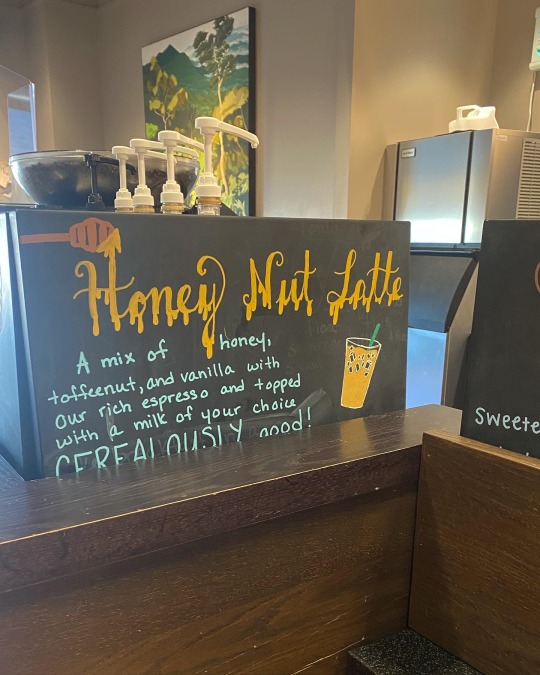 Honey Nut Latte
A mix of honey,
toffeenut, and vanilla with
our rich espresso and topped
with a milk of your choice
CEREALOUSLY good!
Sweete